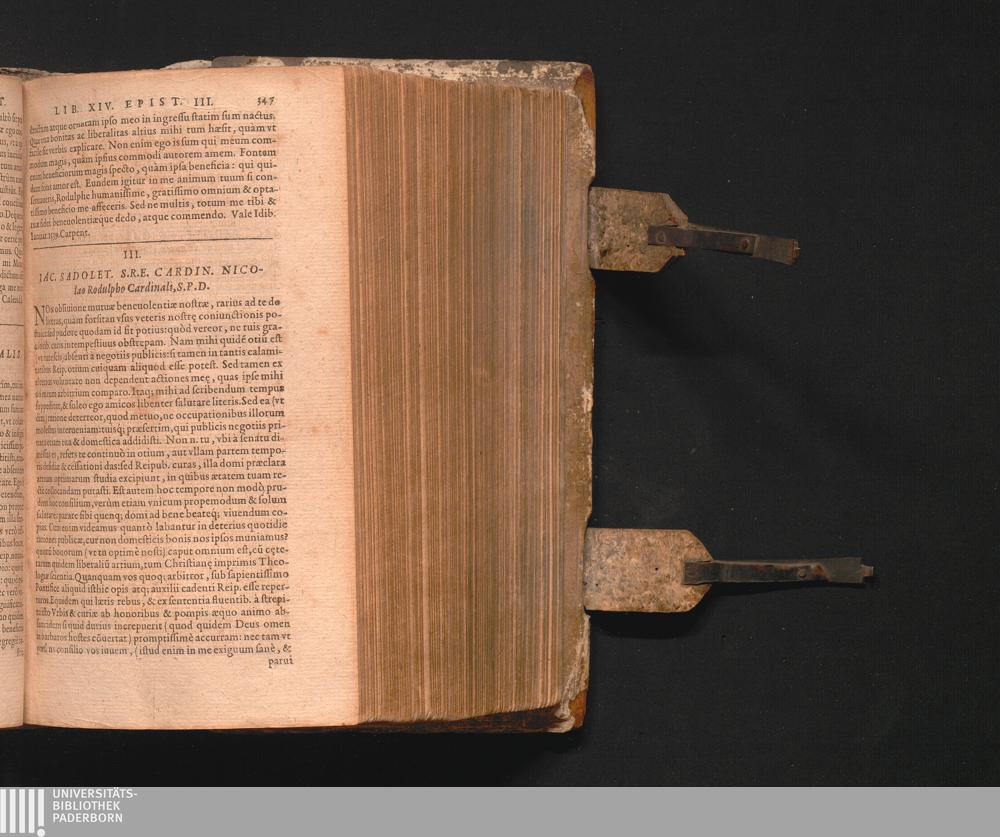 LIB. XIV. EPIST. III. 347
atque ornatam ipso meo in ingressu statim sum nactus.
bonitas ac liberalitas altius mihi tum hæsit, quàm vt
facilè sic verbis explicare. Non enim ego is sum qui meum com-
modum magis, quàm ipsius commodi autorem amem. Fontem
enim beneficiorum magis specto, quàm ipsa beneficia: qui qui-
dem fons amor est. Eundem igitur in me animum tuum si con-
seruaueris, Rodulphe humanissime, gratissimo omnium & opta-
tissimo beneficio me affeceris. Sed ne multis, totum me tibi &
tuæ fidei beneuolentiæque dedo, atque commendo. Vale Idib.
Carpent.
III.
IAC. SADOLET. S.R.E. CARDIN. NICO-
lao Rodulpho Cardinali, S.P.D.
NOn obliuione mutuæ beneuolentiæ nostræ, rarius ad te do
literas, quàm forsitan vsus veteris nostrę coniunctionis po-
sed pudore quodam id fit potius: quòd vereor, ne tuis gra-
curis intempestiuus obstrepam. Nam mihi quidē otiū est
(vt tute scis) absenti à negotiis publicis: si tamen in tantis calami-
tatibus Reip. otium cuiquam aliquod esse potest. Sed tamen ex
voluntate non dependent actiones meę, quas ipse mihi
meum arbitrium comparo. Itaq; mihi ad scribendum tempus
suppeditat, & soleo ego amicos libenter salutare literis. Sed ea (vt
dixi) ratione deterreor, quod metuo, ne occupationibus illorum
molestus interueniam: tuisq; præsertim, qui publicis negotiis pri-
uata etiam tua & domestica addidisti. Non n. tu, vbi à senatu di-
missus es, refers te continuò in otium, aut vllam partem tempo-
ris desidiæ & cessationi das: sed Reipub. curas, illa domi præclara
artium optimarum studia excipiunt, in quibus ætatem tuam re-
ctè collocandam putasti. Est autem hoc tempore non modò pru-
dens hoc consilium, verùm etiam vnicum propemodum & solum
salutare: parare sibi quenq; domi ad bene beateq; viuendum co-
pias. Cùm enim videamus quantò labantur in deterius quotidie
rationes publicæ, cur non domesticis bonis nos ipsos muniamus?
bonorum (vt tu optimè nosti) caput omnium est, cū cęte-
rarum quidem liberaliū artium, tum Christianę imprimis Theo-
logiæ scientia. Quanquam vos quoq; arbitror, sub sapientissimo
Pontifice aliquid isthic opis atq; auxilii cadenti Reip. esse reper-
turos. Equidem qui lætis rebus, & ex sententia fluentib. à strepi-
tu isto Vrbis & curiæ ab honoribus & pompis æquo animo ab-
sim: idem si quid durius increpuerit (quod quidem Deus omen
in barbaros hostes cōuertat) promptissimè accurram: nec tam vt
consilio vos iuuem, (istud enim in me exiguum sanè, &
parui
UNIVERSITÄTS-
BIBLIOTHEK
PADERBORN